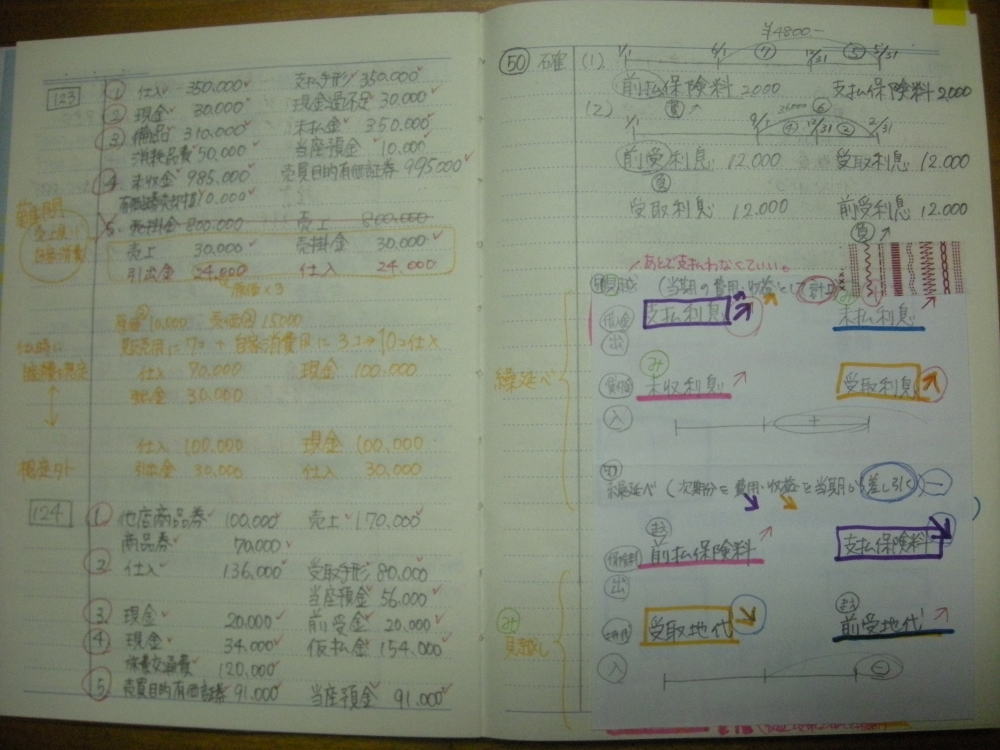 123
① 仕入 350.000 支払手形 350.000
② 現金 30.000 現金過不足 30.000
③ 備品 310.000 未払金 350.000
消耗品費 50.000 当座預金 10.000
④ 未収金 985.000 売買目的有価証券 995000
10.000
5. 売掛金 800.000 売上 800.000
難問
売上 30.000 売掛金 30.000
引出金 24.000 仕入 24.000
原価×3
原価@10.000 売価@15000
販売用に7コ+自家消費用に3コ→10コ仕入
仕入 70.000 現金 100.000
引出金 30.000
仕入 100.000 現金 100.000
想定外 引出金 30.000 仕入 30.000
124
① 他店商品券 100.000 売上 170.000
商品券 70.000
② 仕入 136.000 受取手形 80.000
当座預金 56.000
③ 現金 20.000 前受金 20.000
④ 現金 34.000 仮払金 154.000
旅費交通費 120.000
⑤ 売買目的有価証券 91.000 当座預金 91.000
¥4800-
50 (1) 1/1 6/1 ⑦ 12/31 ⑤ 5/31
前払保険料 2000 支払保険料 2,000
資
(2) ⑥
1/1 9/1 ④ 12/31 ② 2/31
前受利息 12.000 受取利息 12.000
負
受取利息 12.000 前受利息 12.000
負
あとで支払わなくていい。
(当期の費用・収益として計上
支払利息 未払利息
出
繰延べ
み
未収利息 受取利息
入
+
繰延べ (次期分を費用・収益を当期から差し引く) −
前払保険料 支払保険料
出
み
見越し
受取地代 前受地代
入
−